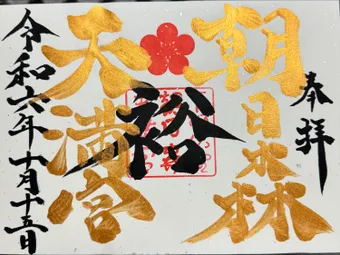 奉拝
朝日森
天満宮
裕
令和六年十月十五日